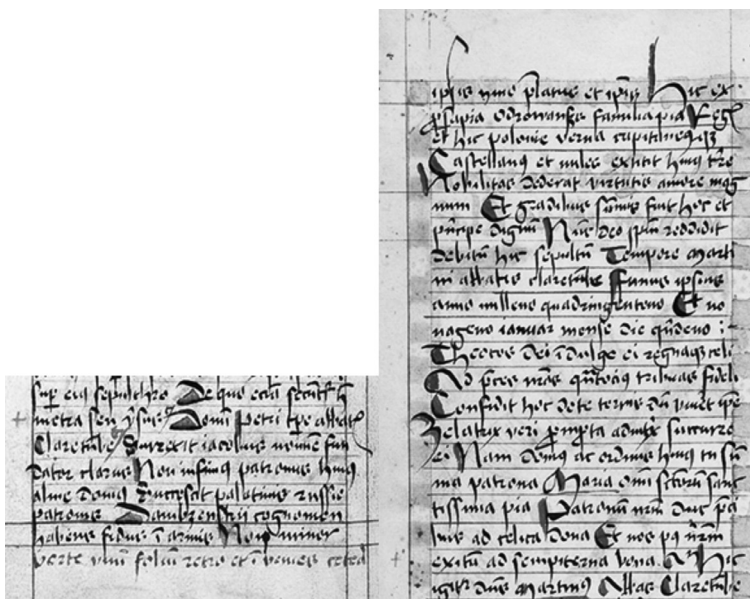 sup eiq sepulchro De que ecclia
metra seu Domi Petri tpe abbat
Claretube Surrexit iacobus nomine fun
dator clarus Non infimus patronus huius
alme domus Successit palatinus russie
patronus Dambrenskii cognomen
habens fidus i armis Non minor
verte vnum folium retro et i venies cetera
platus et Hic ex
psapia Odrowansz familia pia Regq
et hic polonie verna capitaneusqz
Castellanus et miles extitit huius tre
Nobilitas dederat virtutis amore mag
num Et gradibus sumis fuit hoc et
pncipe dignum Nunc deo spm reddidit
debitum hic sepultus Tempore marti
ni abbatis claretube Funus ipsius
anno milleno quadringenteno Et no
nageno ianuar mense die qndeno
Theotos dei i dulge ei regnaqz celi
Ad pces nras tribuas fideli
Confidit hoc de te ternis dum viuet ipse
Zelatrix veri prompta succurre
ei Nam domus ac ordinis huius tu sum
ma patrona Maria omni sctorum sanc
tissima pia Patronum nrm duc
ad celica dona Et nos pq nrm
exitum ad sempiterna bona Hic
igitur dnus Martinus Abbas Claretube